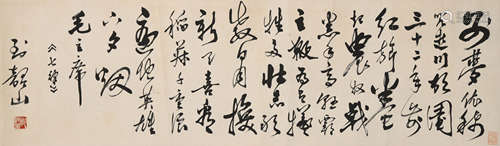 别梦依稀
咒逝川故园
三十二年前
红旗卷
起农奴戟
黑手高悬霸
主鞭为有牺
牲多壮志
敢教日月换
新天喜看
稻菽千重浪
遍地英雄
下夕烟
毛主席
《七律》
到韶山